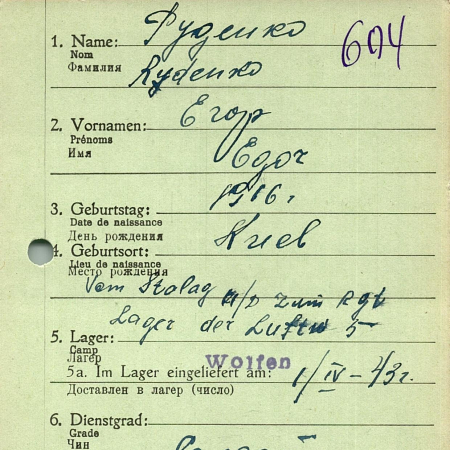 Руденко
1. Name:
Nom
Фамилия
Rydenko
604
Егор
2. Vornamen:
Prénoms
Имя
Egor
1916 г
3. Geburtstag:
Date de naissance
День рождения
Kиев
4. Geburtsort:
Lieu de naissance
Место рождения
Vom Stalag II/D zum Rgt
Lager der Luftw 5
5. Lager:
Camp
Лагерь
Wolfen
5a. Im Lager eingeliefert am: 1/IV – 43 г.
Доставлен в лагер (число)
6. Dienstgrad:
Grade
Чин